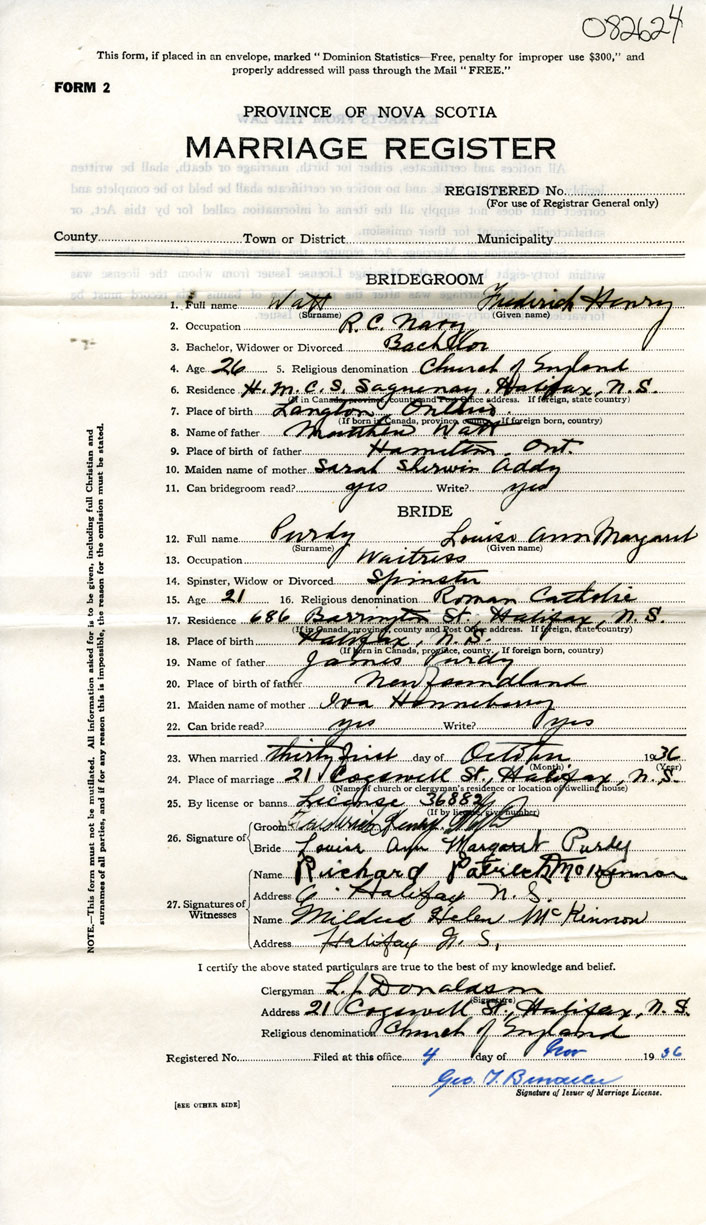 082624
This form, if placed in an envelope, marked "Dominion Statistics—Free, penalty for improper use $300," and
properly addressed will pass through the Mail "FREE."
FORM 2
PROVINCE OF NOVA SCOTIA
MARRIAGE REGISTER
REGISTERED No.
(For use of Registrar General only)
County Town or District Municipality
BRIDEGROOM
1. Full name Watt Frederick Henry
(Surname) (Given name)
2. Occupation R.C. Navy
3. Bachelor, Widower or Divorced Bachelor
4. Age 26 5. Religious denomination Church of England
6. Residence H.M.C.S. Saguenay, Halifax, N.S.
(If in Canada, province, county and Post Office address. If foreign, state country)
7. Place of birth Langton, Ontario.
(If born in Canada, province, county. If foreign born, country)
8. Name of father Matthew Watt
9. Place of birth of father Hamilton, Ont.
10. Maiden name of mother Sarah Sherwin Addy
11. Can bridegroom read? yes Write? yes
BRIDE
12. Full name Purdy Louise Ann Margaret
(Surname) (Given name)
13. Occupation Waitress
14. Spinster, Widow or Divorced Spinster
15. Age 21 16. Religious denomination Roman Catholic
17. Residence 686 Barrington St., Halifax, N.S.
(If in Canada, province, county and Post Office address. If foreign, state country)
18. Place of birth Halifax, N.S.
(If born in Canada, province, county. If foreign born, country)
19. Name of father James Purdy
20. Place of birth of father Newfoundland
21. Maiden name of mother Iva Henneberry
22. Can bride read? yes Write? yes
23. When married thirty first day of October 1936
(Month) (Year)
24. Place of marriage 21 Cogswell St., Halifax, N.S.
(Name of church or clergyman's residence or location of dwelling house)
25. By license or banns License 36882
(If by license, give number)
26. Signature of Groom Frederick Henry Watt
Bride Louise Ann Margaret Purdy
27. Signatures of Witnesses Name Richard Patrick McKinnon
Address Halifax N.S.
Name Mildred Helen McKinnon
Address Halifax N.S.
I certify the above stated particulars are true to the best of my knowledge and belief.
Clergyman L. J. Donaldson
(Signature)
Address 21 Cogswell St., Halifax, N.S.
Religious denomination Church of England
Registered No. Filed at this office 4 day of Nov 1936
Geo. T.
Signature of Issuer of Marriage License.
[SEE OTHER SIDE]
NOTE.—This form must not be mutilated. All information asked for is to be given, including full Christian and
surnames of all parties, and if for any reason this is impossible, the reason for the omission must be stated.